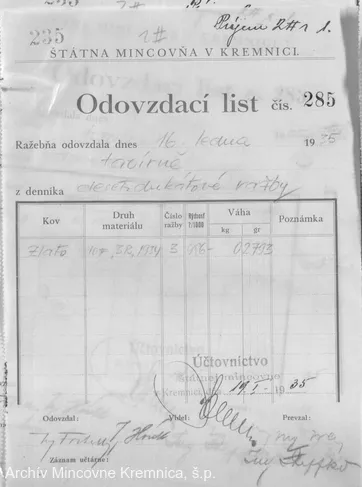 235
1#
Príjem 2#1
ŠTÁTNA MINCOVŇA V KREMNICI.
Odovzdací list čís. 285
Ražebňa odovzdala dnes 16. ledna 1935
tavírně
z denníka desetidukátové ražby
Kov Druh materiálu Číslo ražby Rýdzosť 1/1000 Váha kg gr Poznámka
Zlato 3 986 - 02793
Účtovníctvo
štátnej mincovne
v Kremnici 19.I- 1935
Odovzdal: Videl: Prevzal:
Záznam učtárne:
Archív Mincovne Kremnica, š.p.